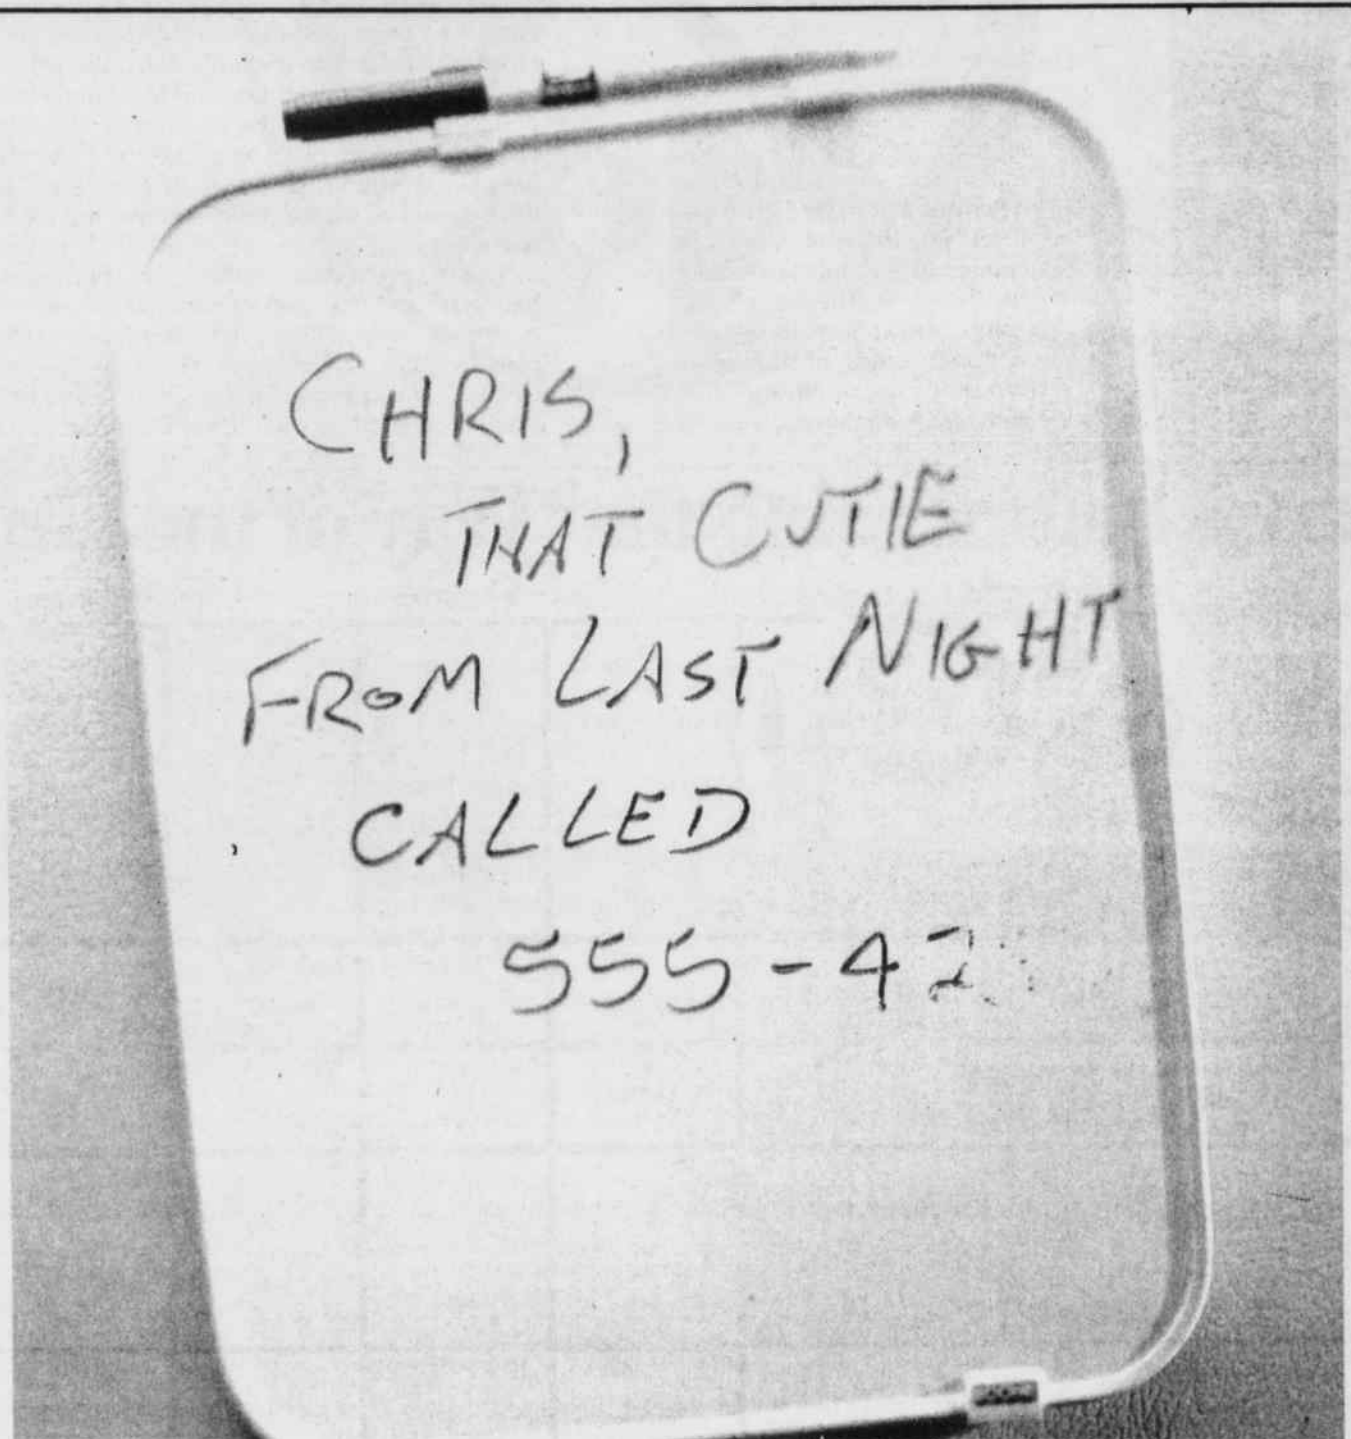 CHRIS,
THAT CUTIE
FROM LAST NIGHT
CALLED
555-42